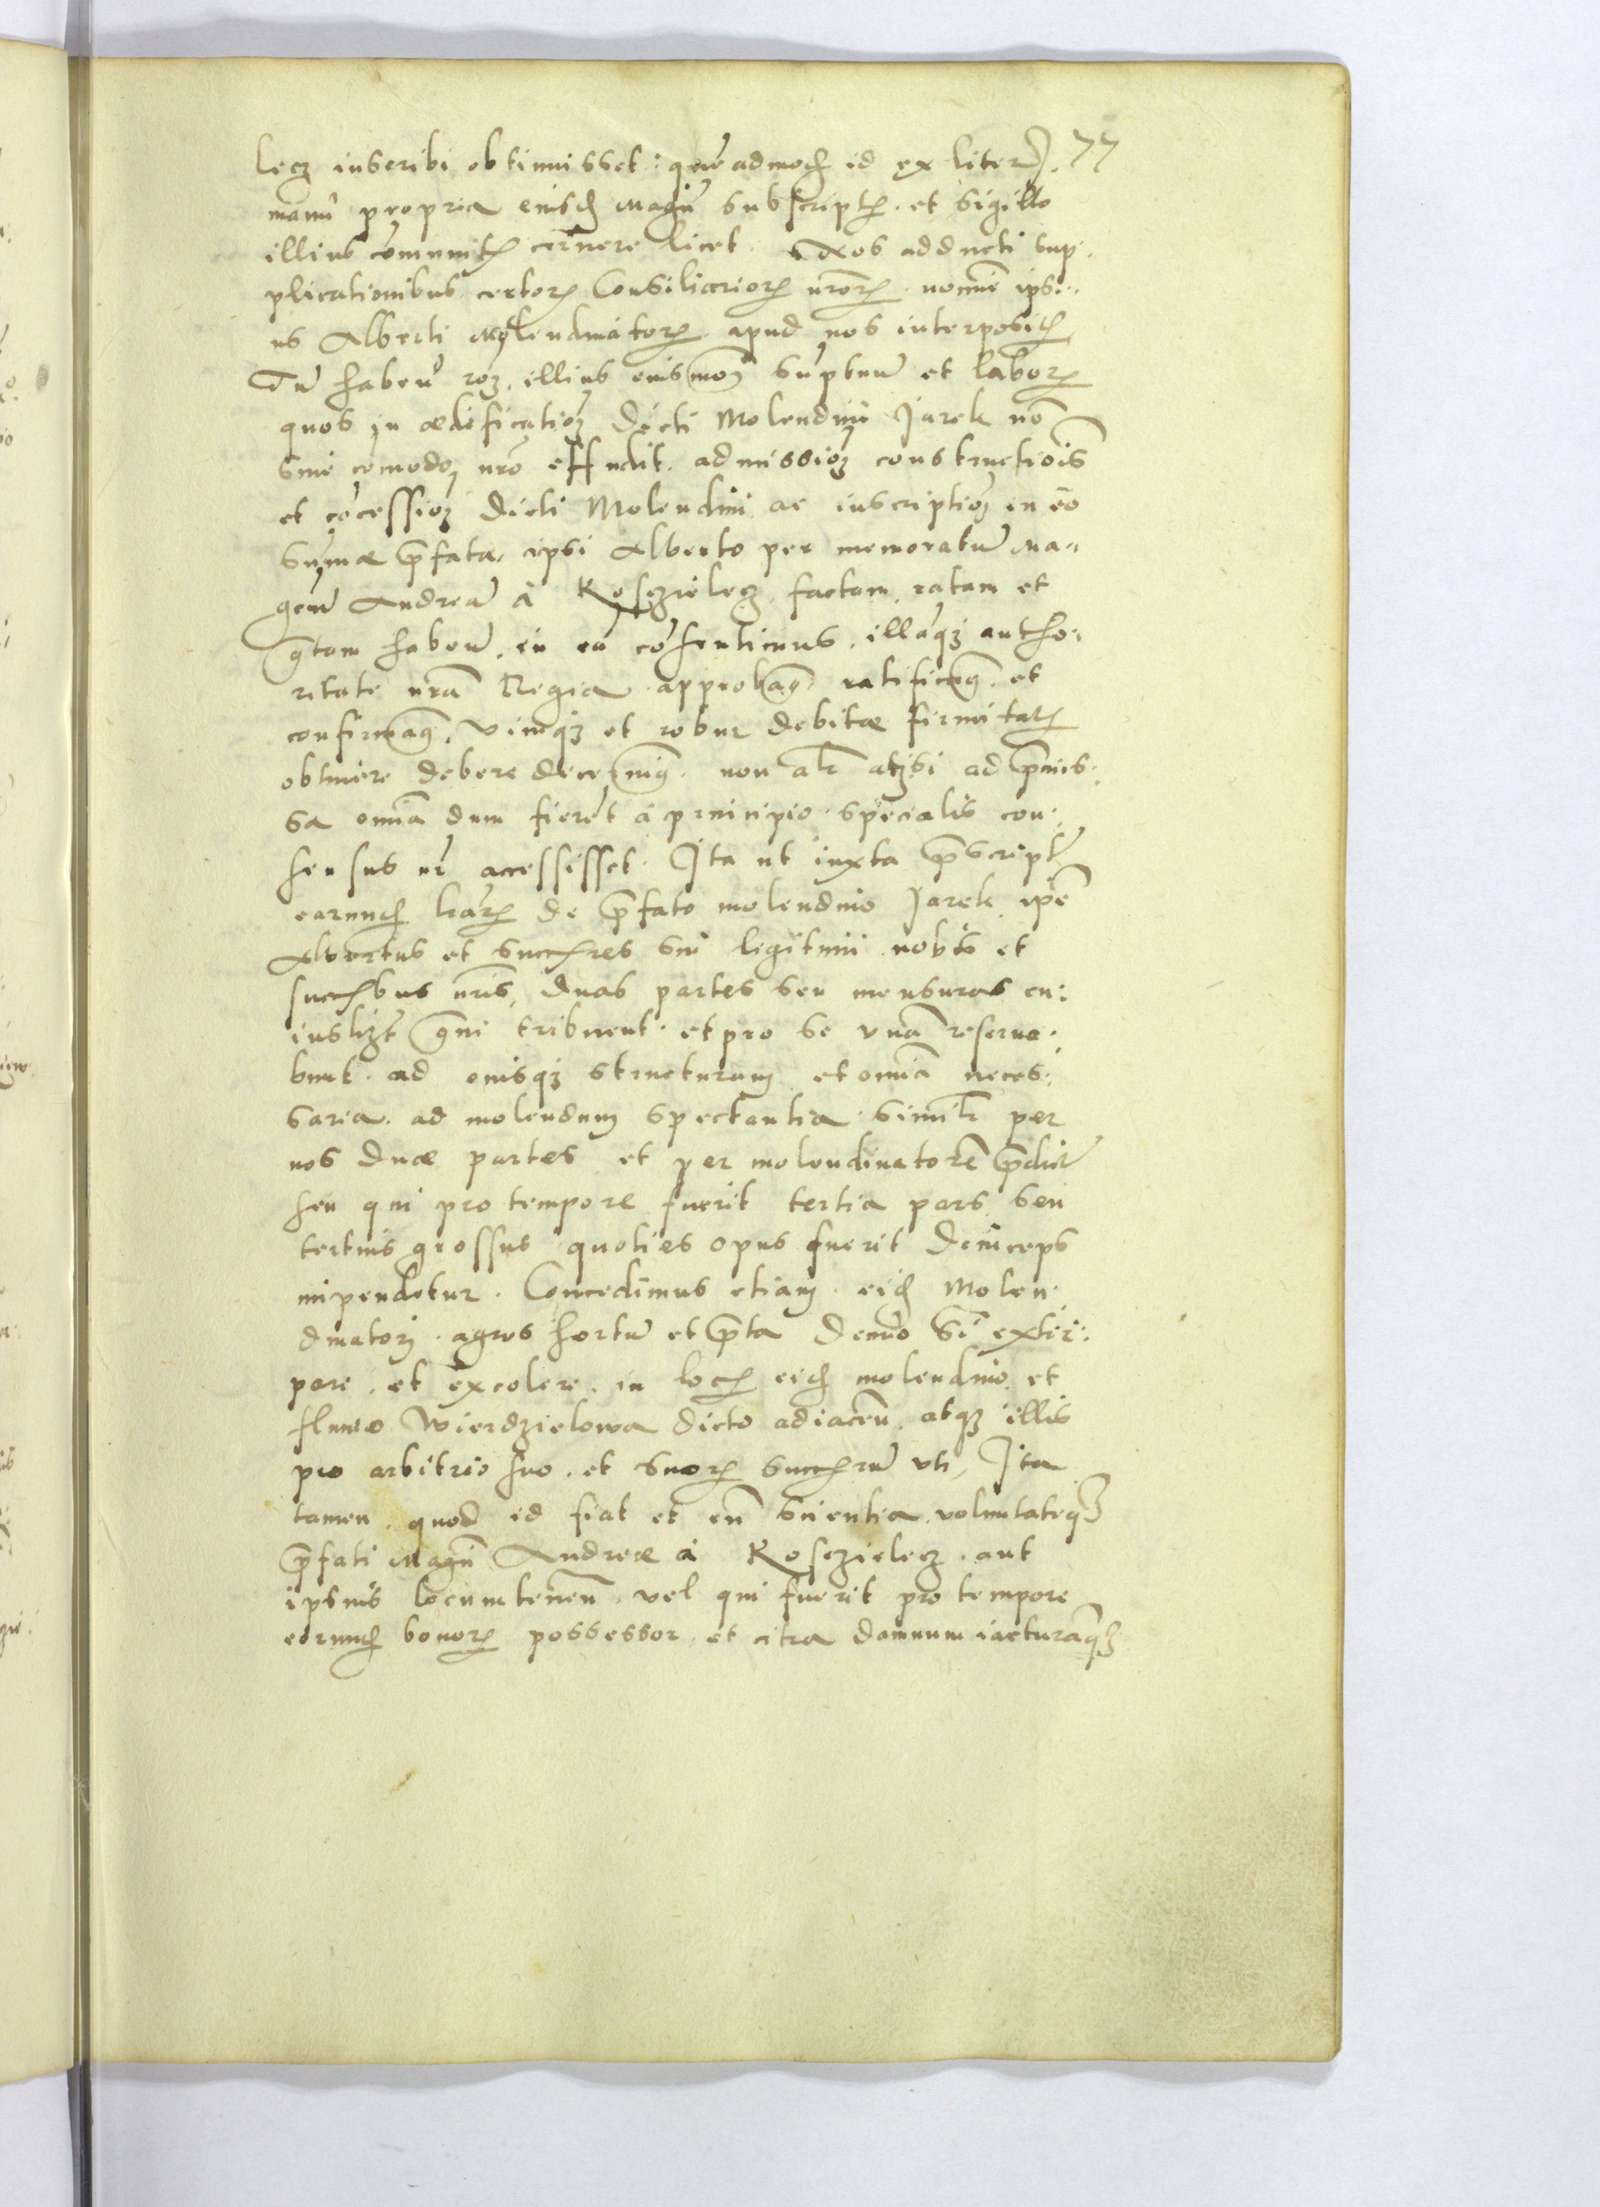 lecz inscribi obtinuisset: quẽadmođ id ex literis. 77
manu propria eiusđ Magci subscriptis. et sigillo
illius cõmunitis cernere licet. Nos adducti sup:
plicationibus certorum Consiliariorum nrorum nomine ipsi:
us Alberti Molendinatoris apud nos interpositis
Tũ habentes rõem illius eiusmodi sũptuum et laborum
quos in ædificationem dicti Molendini Jarek nõ
sine comodo nro effudit. admissionem constructiois
et cõcessionem dicti Molendini ac inscriptionem in eo
sũmæ præfatæ ipsi Alberto per memoratũ Ma-
gcum Andreã à Kosczielecz factam, ratam et
gratam habentes, in eã cõsentimus, illãqȝ autho:
ritate nrã Regia approbamus ratificamus et
confirmamus. Vimqȝ et robur debitæ firmitatis
obtinere debere decernimus. non alr atqȝ si ad præmis:
sa omnia dum fierent à principio specialis con:
sensus nr accessisset. Ita ut iuxta præscriptum
earundem lrarum de præfato molendino Jarek ipse
Albertus et successores sui legitimi nobis et
successoribus nris, duas partes seu mensuras cu:
iuslibet grani tribuent. et pro se vnã reserua:
bunt. ad eiusqȝ structuram et omnia neces:
saria ad molendum spectantia similr per
nos duæ partes et per molendinatorẽ prædictum
seu qui pro tempore fuerit tertia pars seu
tertius grossus quoties opus fuerit deinceps
impendetur. Concedimus etiam eiđ Molen
dinatori agros hortũ et prata denuo sibi extir:
pare et excolere in locis eiđ molendino et
fluuio Wierdzielowa dicto adiacen. atqȝ illis
pro arbitrio suo et suorum successorum vti, Ita
tamen quod id fiat et cũ scientia voluntateqȝ
præfati Magci Andreæ à Kosczielecz. aut
ipsius locumtenen. vel qui fuerit pro tempore
eorunđ bonorum possessor et citra damnum iacturãqȝ